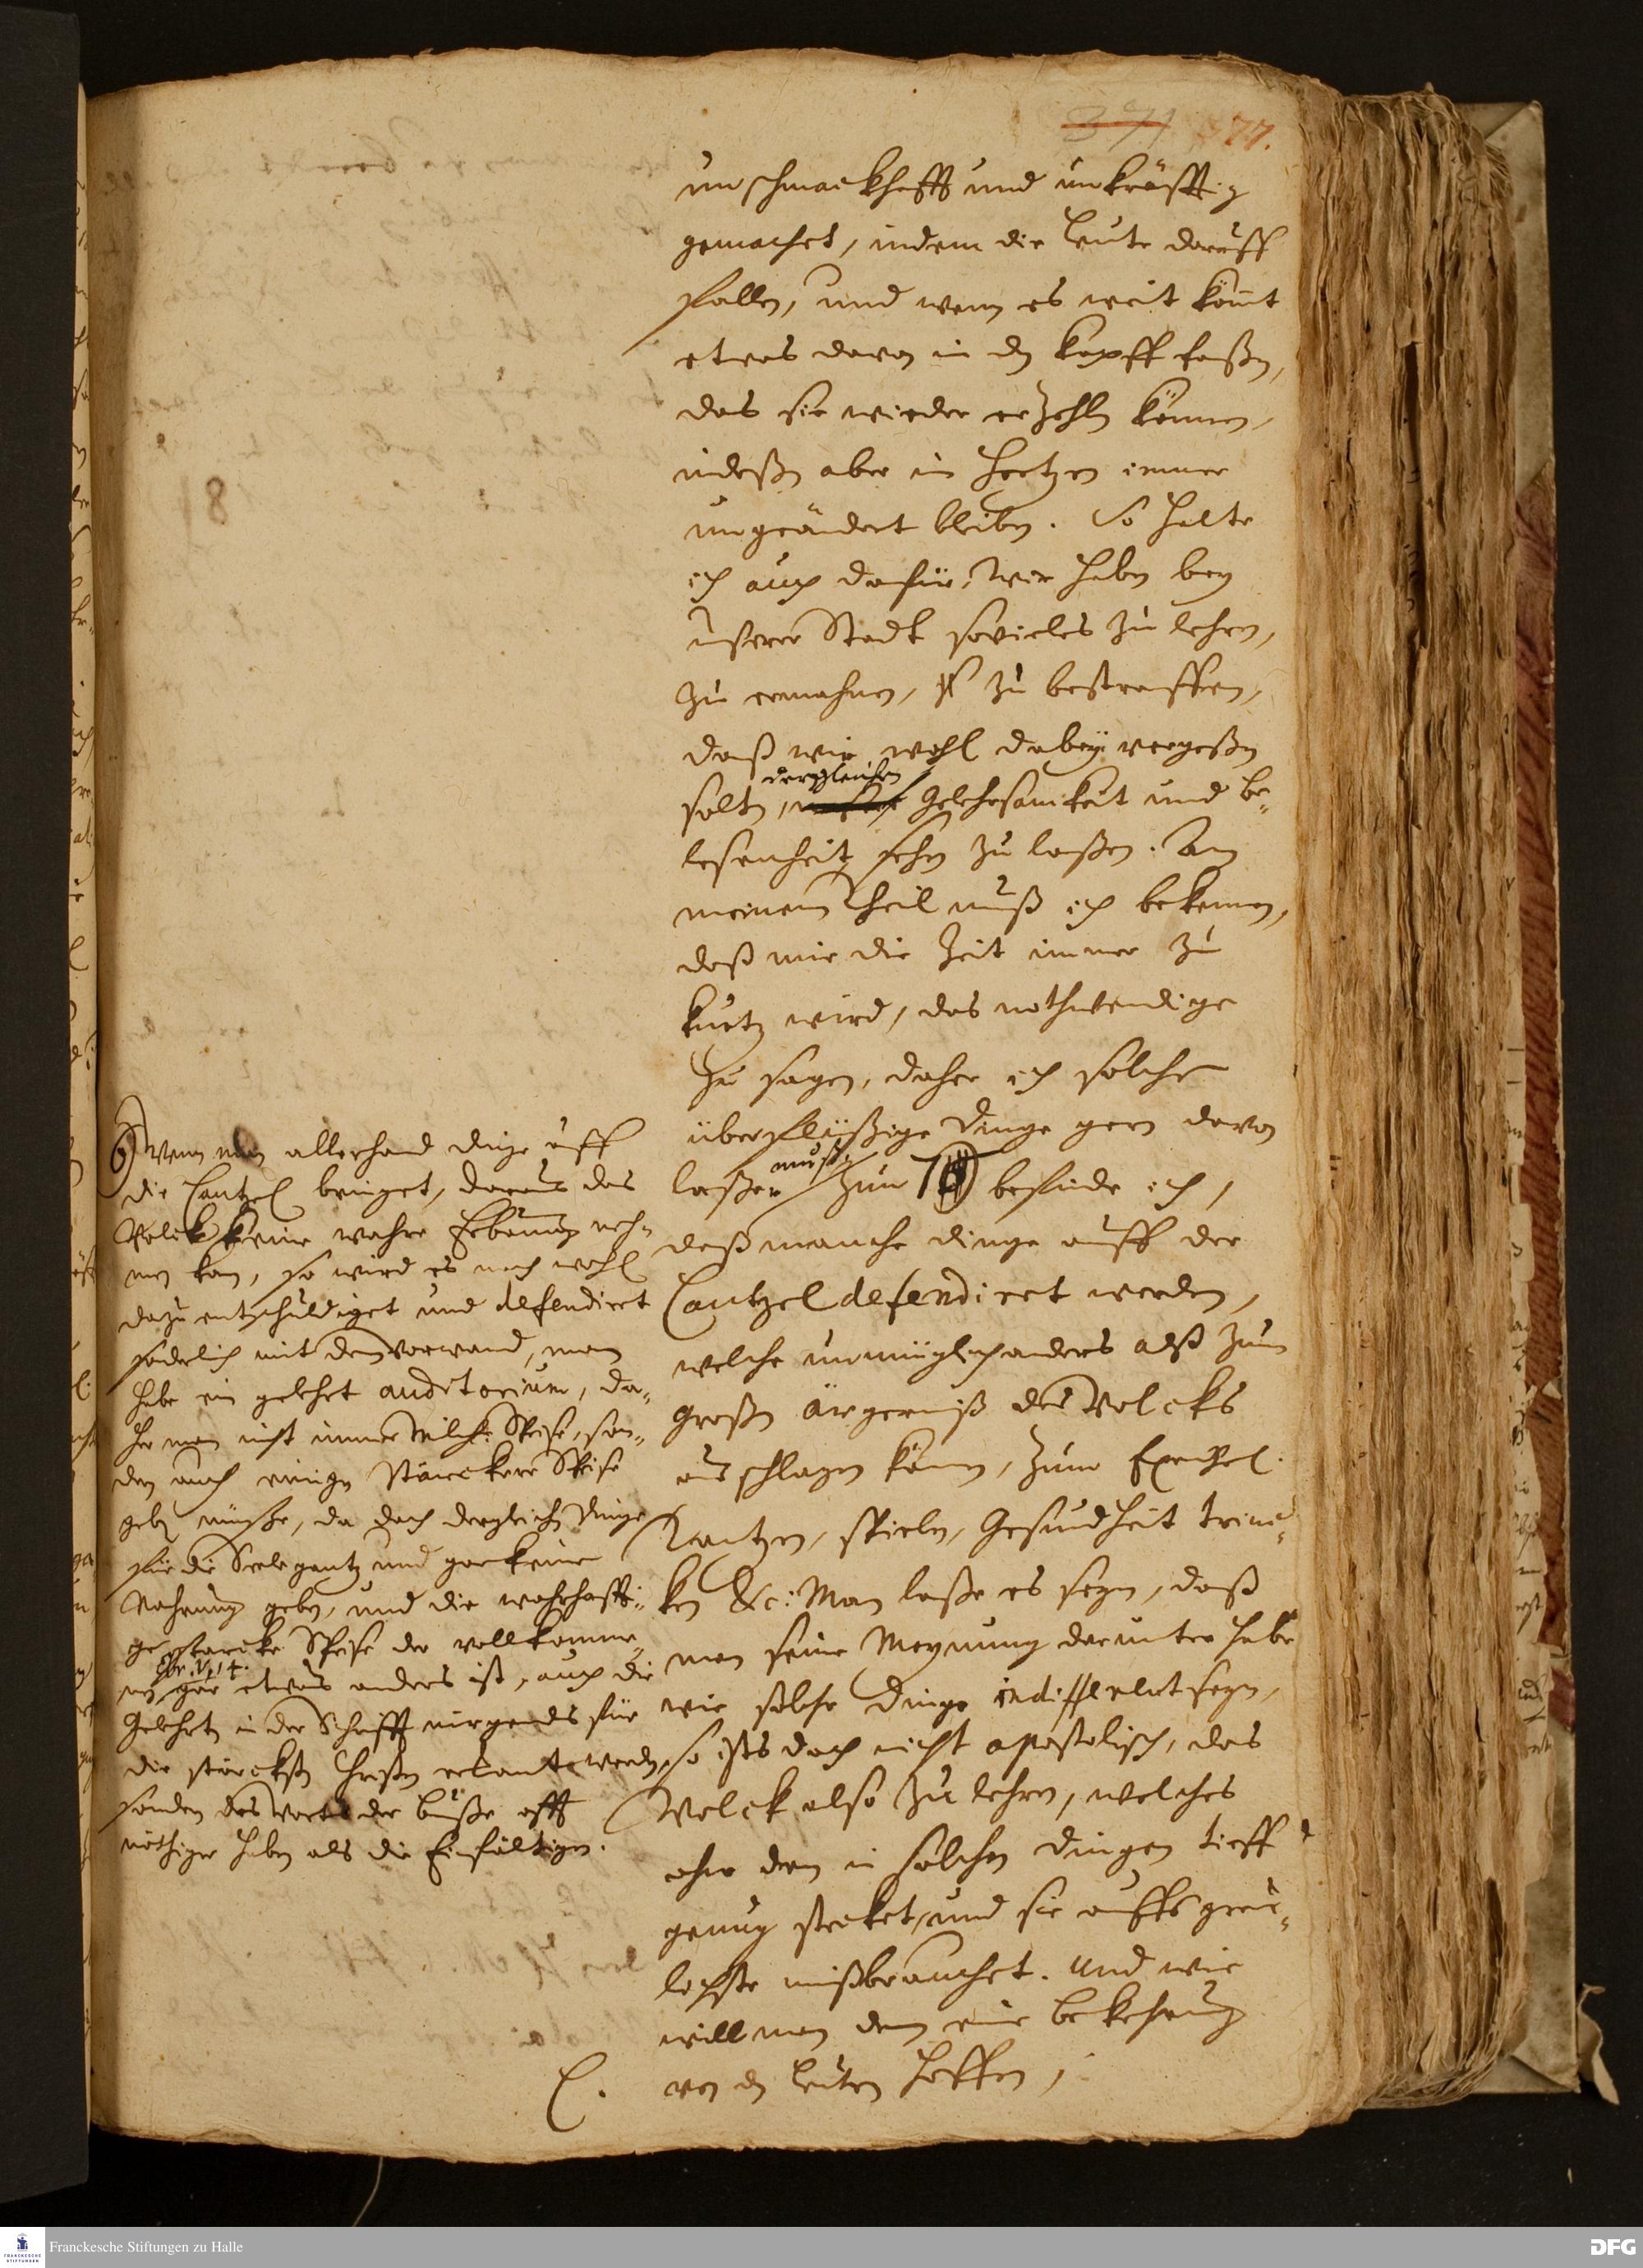 371 377.
unschmackhafft und unkräfftig
gemachet, indem die Leute darauff
fallen, und wenn es weit kömt
etwas davon in den kopff faßen,
das sie wieder erzehlen können,
indeßen aber im Hertzen immer
ungeändert bleiben. So halte
ich auch dafür, Wir haben bey
unserer Stadt sovieles zu lehren,
zu ermahnen, zu bestraffen,
daß wir wohl dabey vergeßen
dergleichen
solten, Gelehrsamkeit und be-
lesenheit sehen zu laßen. An
meinem Theil muß ich bekennen,
daß mir die Zeit immer zu
kurtz wird, das nothwendige
zu sagen, daher ich solche
überflüßige Dinge gern davon
laßen muß. Zum befinde ich,
daß manche dinge auff der
Cantzel defendiret werden,
welche unmüglich anders alß zum
großen ärgerniß des Volcks
ausschlagen können, zum Exempel.
Tantzen, spielen, Gesundheit trinc-
ken &c: Man laße es seyn, daß
man seine Meynung darunter habe
wie solche Dinge indifferent seyn,
so ists doch nicht apostolisch, das
Volck also zu lehren, welches
ohne dem in solchen dingen tieff
genug stecket, und sie auffs greu-
lichste mißbrauchet. Und wie
will man denn eine bekehrung
von den Leuten hoffen,
6) Wenn man allerhand dinge auff
die Cantzel bringet, daraus das
Volck keine wahre Erbauung neh-
men kan, so wird es noch wohl
dazu entschuldiget und defendiret
sonderlich mit dem vorwand, man
habe ein gelehrt auditorium, da-
her man nicht immer Milch-Speise, son-
dern auch einige stärckere Speise
geben müße, da doch dergleichen Dinge
für die Seele gantz und gar keine
Nahrung geben, und die wahrhaffti-
ge starcke Speise der vollkomme-
Ebr. V, 14.
nen gar etwas anders ist, auch die
Gelehrten in der Schrifft nirgends für
die stärcksten Christen erkant werden,
sondern das Wort der buße offt
nöthiger haben als die Einfältigen.
C.
Franckesche Stiftungen zu Halle
FRANCKESCHE STIFTUNGEN
DFG